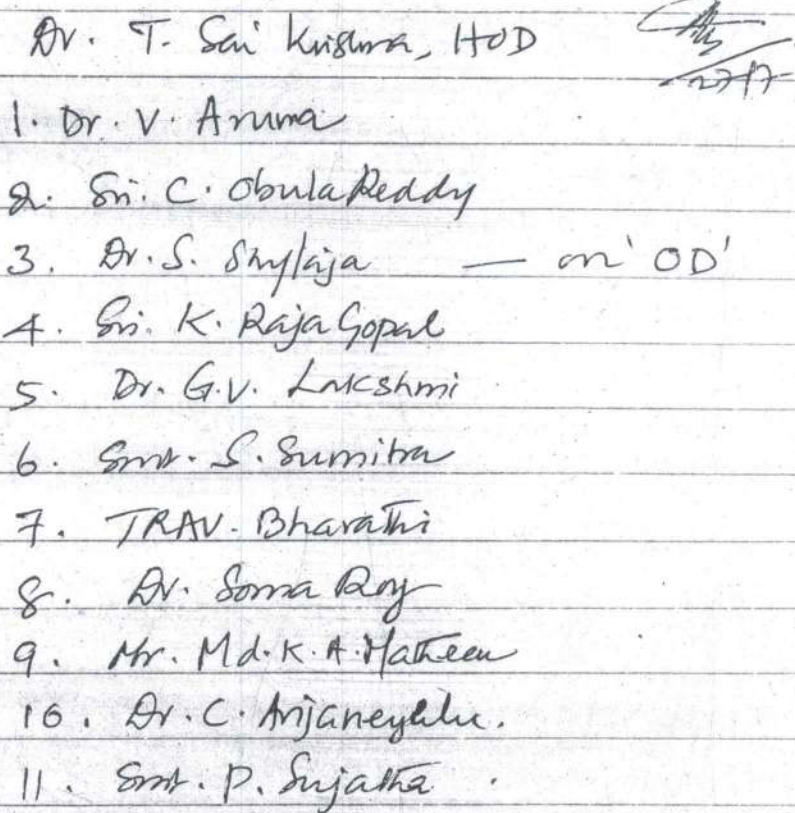 Dr. T. Sai Krishna, HOD
1. Dr. V. Aruna
2. Sri. C. Obula Reddy
3. Dr. S. Shylaja — on 'OD'
4. Sri. K. Raja Gopal
5. Dr. G.V. Lakshmi
6. Smt. S. Sumitra
7. TRAV. Bharathi
8. Dr. Soma Roy
9. Mr. Md. K. A. Mateen
10. Dr. C. Anjaneyulu.
11. Smt. P. Sujatha.